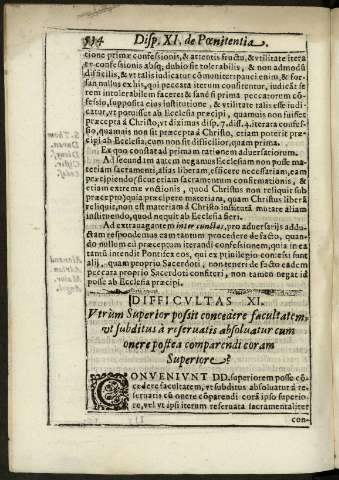 534 Disp. XI. de Pœnitentia.
tione primæ confessionis, & attentis fructu, & vtilitate itera
tæ confessionis absq; dubio sit tolerabilis, & non admodũ
difficilis, & vt talis indicatur cõmuniter: pauci enim, & for-
san nullus ex his, qui peccata iterum confitentur, iudicat se
rem intolerabilem facere; & sanè si prima peccatorem cõ-
fessio, supposita eius institutione, & vtilitate talis esse iudi-
catur, vt potuisset ab Ecclesia præcipi, quamuis non fuisset
præcepta à Christo, vt diximus disp. 7. dif. 4. iterata confes-
sio, quamuis non sit præcepta à Christo, etiam poterit præ-
cipi ab Ecclesia, cum non sit difficilior, quam prima.
Ex quo constat ad primam rationem aduersariorum.
Ad secundam autem negamus Ecclesiam non posse ma-
teriam sacramenti, aliàs liberam, efficere necessariam, eam
præcipiendo; sicut etiam sacramentum confirmationis, &
etiam extremæ vnctionis, quod Christus non reliquit sub
præcepto; quia præcipere materiam, quam Christus liberã
reliquit, non est materiam à Christo institutã mutare aliam
instituendo, quod nequit ab Ecclesia fieri.
Ad extrauagantem inter cunctas, pro aduersarijs addu-
ctam respondemus eam tantum procedere de facto, quan-
do nullem cũ præceptum iterandi confessionem, quia in ea
tantũ intendit Pontifex eos, qui ex priuilegio confessi sunt
alij, quam proprio Sacerdoti, non teneri de facto eadem
peccata proprio Sacerdoti confiteri, non tamen negat id
posse ab Ecclesia præcipi.
DIFFICVLTAS XI.
Vtrum Superior possit concedere facultatem,
vt subditus à reseruatis absoluatur cum
onere postea comparendi coram
Superiore?
CONVENIVNT DD. superiorem posse cõ-
cedere facultatem, vt subditus absoluatur à re-
seruatis cũ onere cõparendi corã ipso superio-
re, vel vt ipsi iterum reseruata sacramentaliter
con-